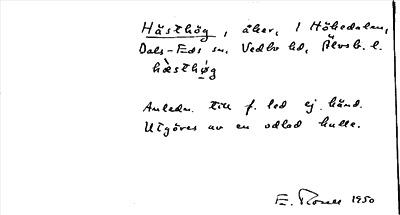 Hästhög, åker, i Högedalen,
Dals-Eds sn. Vedbo hd, Älvsb. l.
hàsthǿg
Anledn. till f. led ej känd.
Utgöres av en odlad kulle.
E. 1950